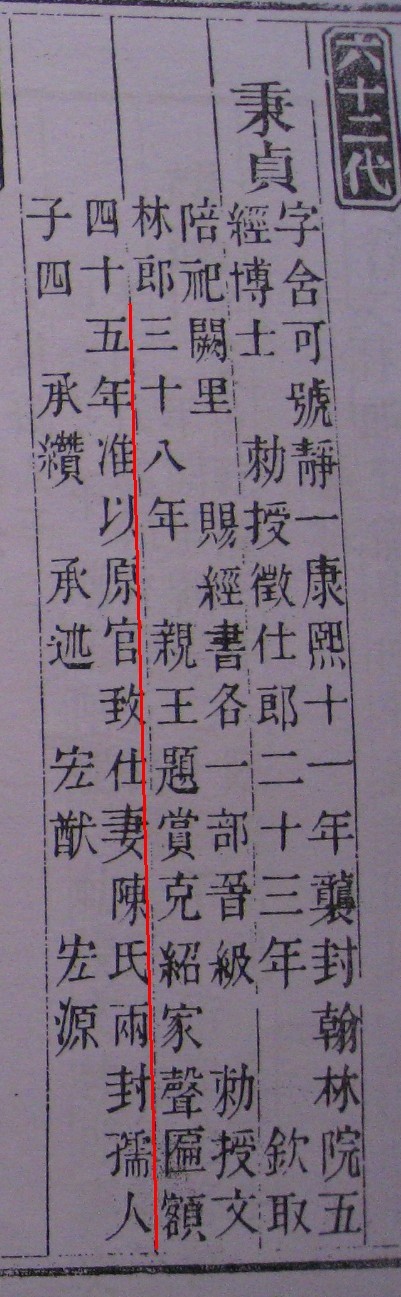 六十二代
秉貞
字含可號靜一康熙十一年襲封翰林院五
經博士 勅授徵仕郎二十三年 欽取
陪祀闕里 賜經書各一部晉級 勅授文
林郎三十八年 親王題賞克紹家聲匾額
四十五年准以原官致仕妻陳氏兩封孺人
子四 承纘 承述 宏猷 宏源